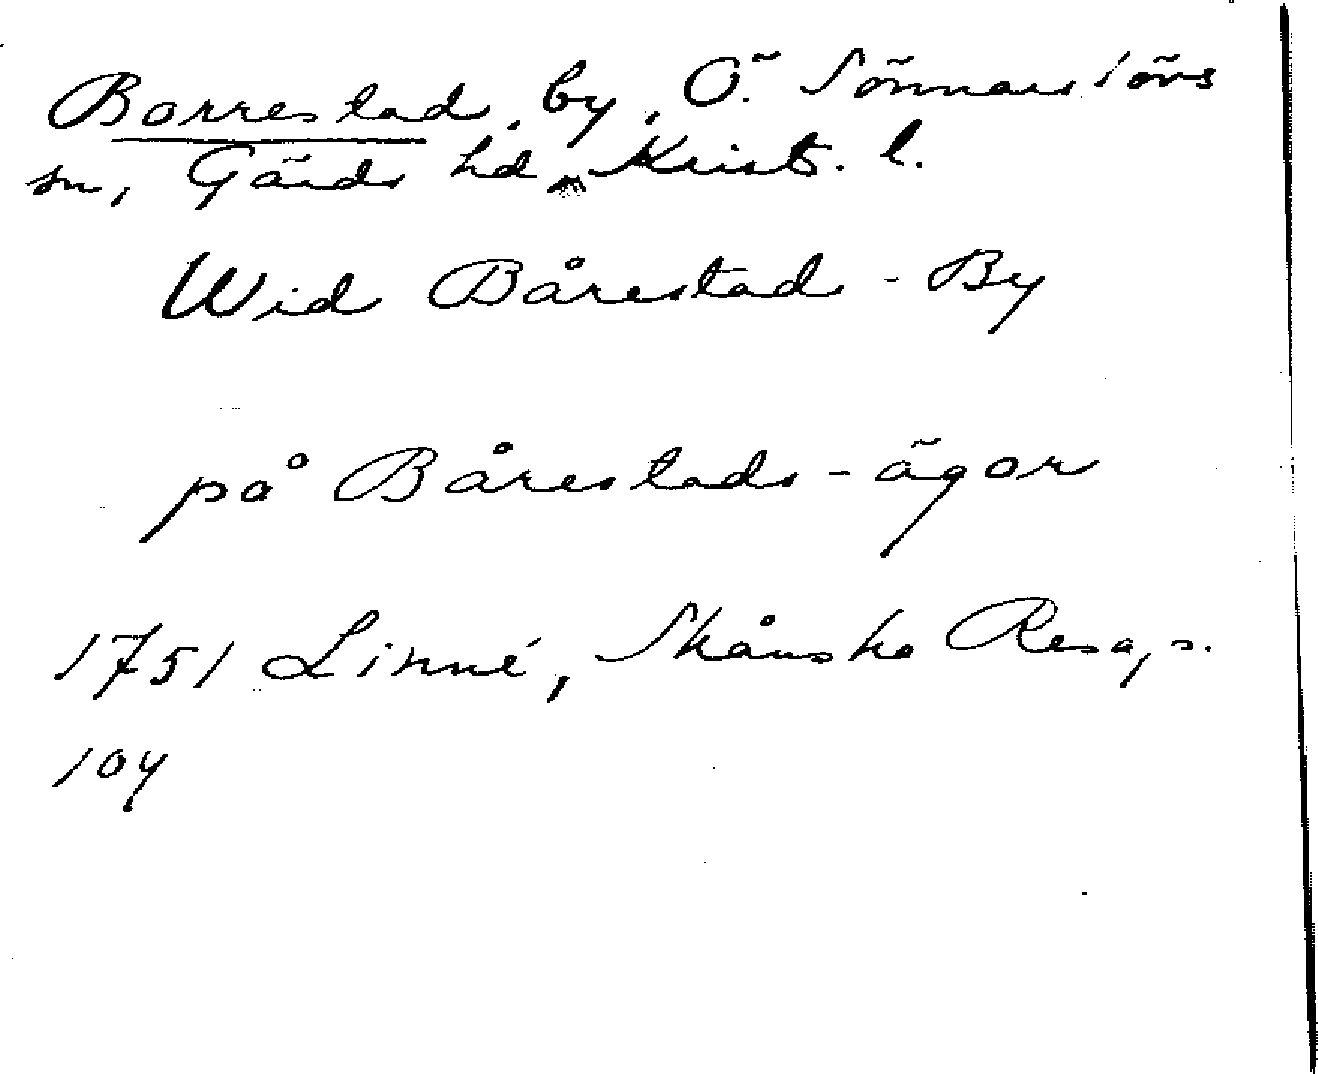 Borrestad, by, Ö. Sönnarslövs
sn, Gärds hd, Krist. l.
Wid Bårestad - By
på Bårestads-ägor
1751 Linné, Skånska Resa, s.
104